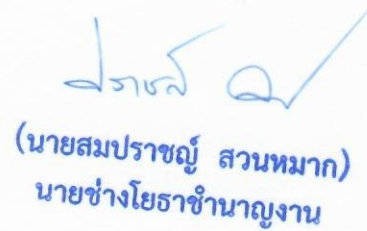 (นายสมปราชญ์ สวนหมาก)
นายช่างโยธาชำนาญงาน